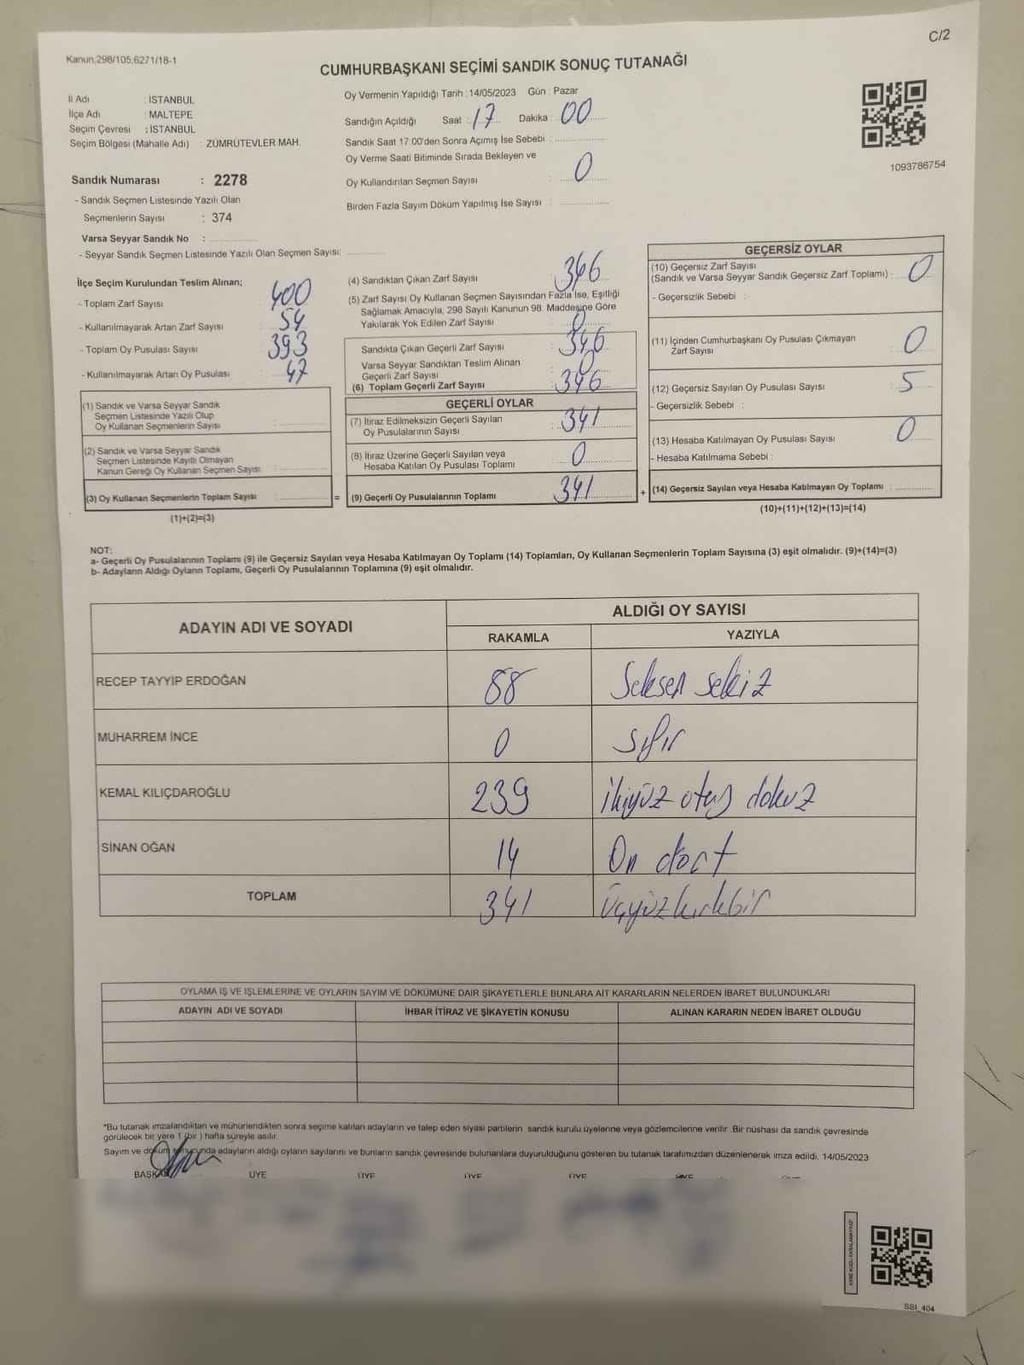 C/2
Kanun.298/105,6271/18-1
CUMHURBAŞKANI SEÇİMİ SANDIK SONUÇ TUTANAĞI
İl Adı : İSTANBUL
İlçe Adı : MALTEPE
Seçim Çevresi : İSTANBUL
Seçim Bölgesi (Mahalle Adı) : ZÜMRÜTEVLER MAH.
Sandık Numarası : 2278
- Sandık Seçmen Listesinde Yazılı Olan
Seçmenlerin Sayısı : 374
Varsa Seyyar Sandık No :
- Seyyar Sandık Seçmen Listesinde Yazılı Olan Seçmen Sayısı:
Oy Vermenin Yapıldığı Tarih : 14/05/2023 Gün : Pazar
Sandığın Açıldığı Saat : 17 Dakika : 00
Sandık Saat 17:00'den Sonra Açılmış İse Sebebi :
Oy Verme Saati Bitiminde Sırada Bekleyen ve
Oy Kullandırılan Seçmen Sayısı : 0
Birden Fazla Sayım Döküm Yapılmış İse Sayısı :
1093786754
İlçe Seçim Kurulundan Teslim Alınan;
- Toplam Zarf Sayısı : 400
- Kullanılmayarak Artan Zarf Sayısı : 54
- Toplam Oy Pusulası Sayısı : 393
- Kullanılmayarak Artan Oy Pusulası : 47
(1) Sandık ve Varsa Seyyar Sandık
Seçmen Listesinde Yazılı Olup
Oy Kullanan Seçmenlerin Sayısı :
(2) Sandık ve Varsa Seyyar Sandık
Seçmen Listesinde Kayıtlı Olmayan
Kanun Gereği Oy Kullanan Seçmen Sayısı :
(3) Oy Kullanan Seçmenlerin Toplam Sayısı :
(1)+(2)=(3)
(4) Sandıktan Çıkan Zarf Sayısı : 346
(5) Zarf Sayısı Oy Kullanan Seçmen Sayısından Fazla İse, Eşitliği
Sağlamak Amacıyla, 298 Sayılı Kanunun 98. Maddesine Göre
Yakılarak Yok Edilen Zarf Sayısı : 0
Sandıkta Çıkan Geçerli Zarf Sayısı : 346
Varsa Seyyar Sandıktan Teslim Alınan
Geçerli Zarf Sayısı : 0
(6) Toplam Geçerli Zarf Sayısı : 346
GEÇERLİ OYLAR
(7) İtiraz Edilmeksizin Geçerli Sayılan
Oy Pusulalarının Sayısı : 341
(8) İtiraz Üzerine Geçerli Sayılan veya
Hesaba Katılan Oy Pusulası Toplamı : 0
= (9) Geçerli Oy Pusulalarının Toplamı : 341
GEÇERSİZ OYLAR
(10) Geçersiz Zarf Sayısı
(Sandık ve Varsa Seyyar Sandık Geçersiz Zarf Toplamı) : 0
- Geçersizlik Sebebi :
(11) İçinden Cumhurbaşkanı Oy Pusulası Çıkmayan
Zarf Sayısı : 0
(12) Geçersiz Sayılan Oy Pusulası Sayısı : 5
- Geçersizlik Sebebi :
(13) Hesaba Katılmayan Oy Pusulası Sayısı : 0
- Hesaba Katılmama Sebebi :
+ (14) Geçersiz Sayılan veya Hesaba Katılmayan Oy Toplamı :
(10)+(11)+(12)+(13)=(14)
NOT:
a- Geçerli Oy Pusulalarının Toplamı (9) ile Geçersiz Sayılan veya Hesaba Katılmayan Oy Toplamı (14) Toplamları, Oy Kullanan Seçmenlerin Toplam Sayısına (3) eşit olmalıdır. (9)+(14)=(3)
b- Adayların Aldığı Oyların Toplamı, Geçerli Oy Pusulalarının Toplamına (9) eşit olmalıdır.
ADAYIN ADI VE SOYADI
ALDIĞI OY SAYISI
RAKAMLA YAZIYLA
RECEP TAYYİP ERDOĞAN 88 Seksen sekiz
MUHARREM İNCE 0 sıfır
KEMAL KILIÇDAROĞLU 239 ikiyüz otuz dokuz
SİNAN OĞAN 14 On dört
TOPLAM 341 Üçyüzkırkbir
OYLAMA İŞ VE İŞLEMLERİNE VE OYLARIN SAYIM VE DÖKÜMÜNE DAİR ŞİKAYETLERLE BUNLARA AİT KARARLARIN NELERDEN İBARET BULUNDUKLARI
ADAYIN ADI VE SOYADI İHBAR İTİRAZ VE ŞİKAYETİN KONUSU ALINAN KARARIN NEDEN İBARET OLDUĞU
*Bu tutanak imzalandıktan ve mühürlendikten sonra seçime katılan adayların ve talep eden siyasi partilerin sandık kurulu üyelerine veya gözlemcilerine verilir .Bir nüshası da sandık çevresinde
görülecek bir yere 1 (bir ) hafta süreyle asılır.
Sayım ve döküm sonucunda adayların aldığı oyların sayılarını ve bunların sandık çevresinde bulunanlara duyurulduğunu gösteren bu tutanak tarafımızdan düzenlenerek imza edildi. 14/05/2023
BAŞKAN ÜYE ÜYE ÜYE ÜYE
SBI_404